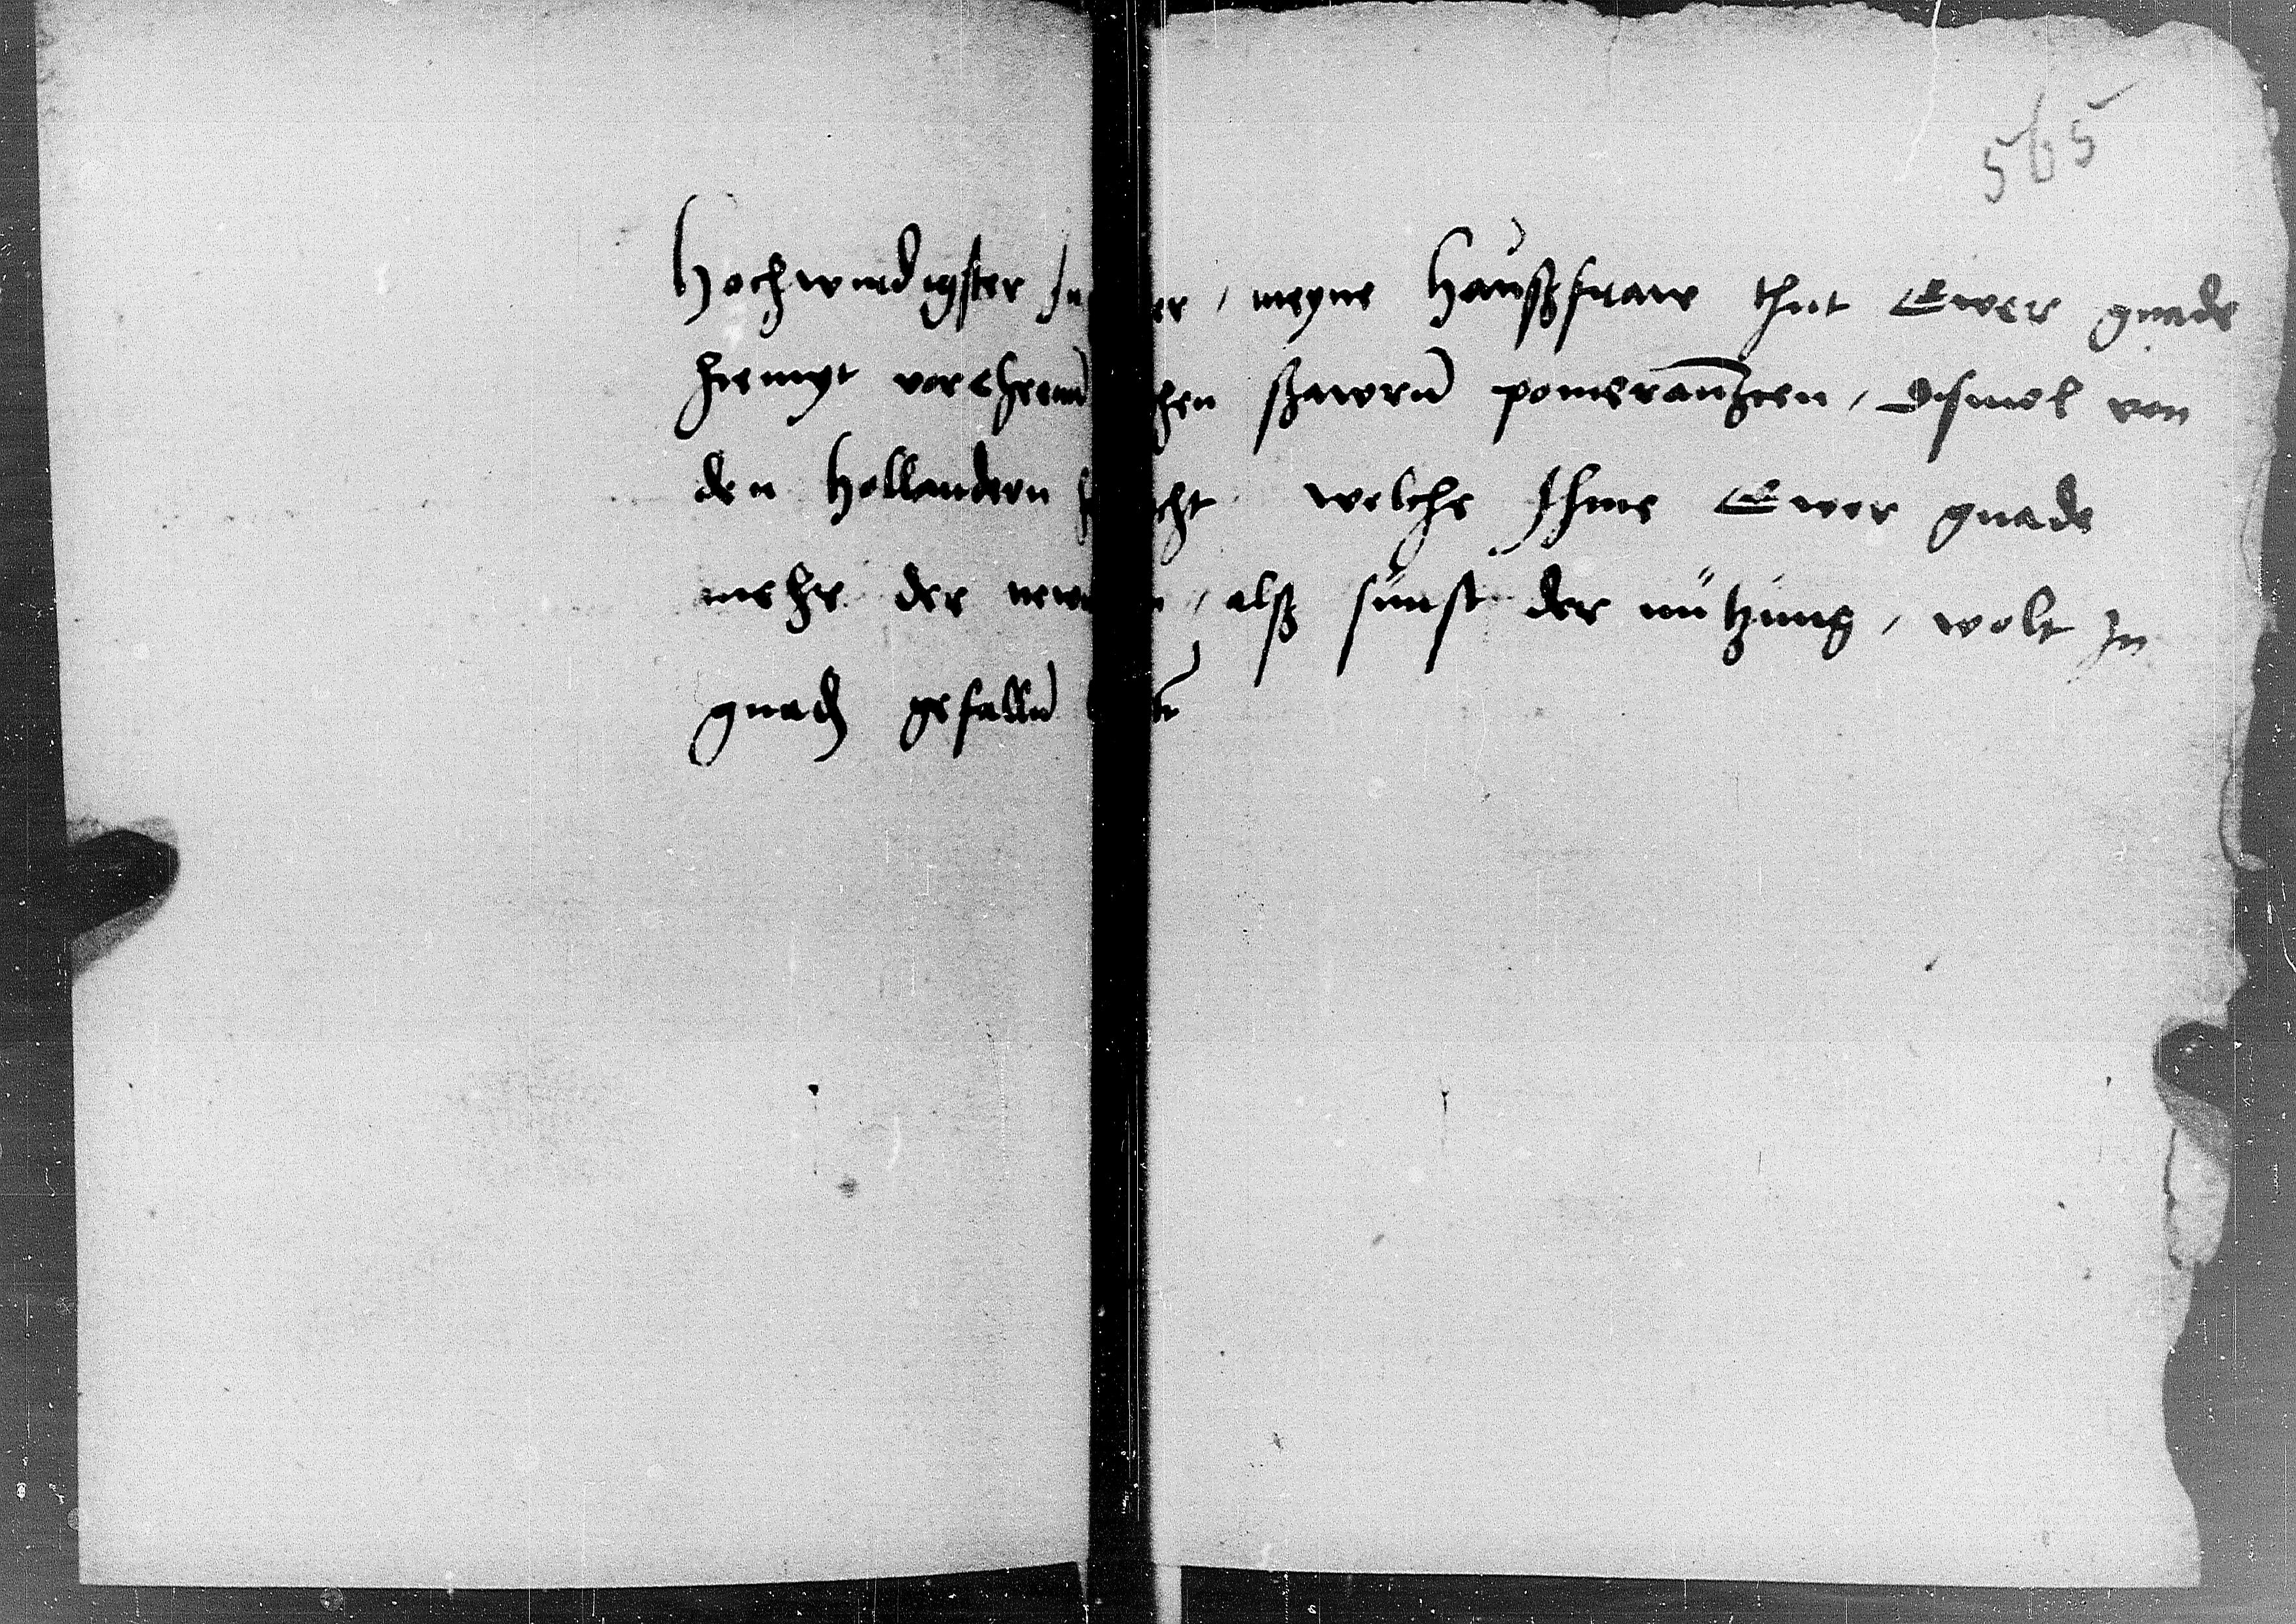 565
Hochwirdigster er, meyne Haußfraw thut Ewer gnade
hiemyt vorehrenn hen ßawrn pomeranzcen, dismol von
den Hollandern cht welche Ihme Ewer gnade
mehr der als sunst der nützung, wolt In
gnadn gefalln